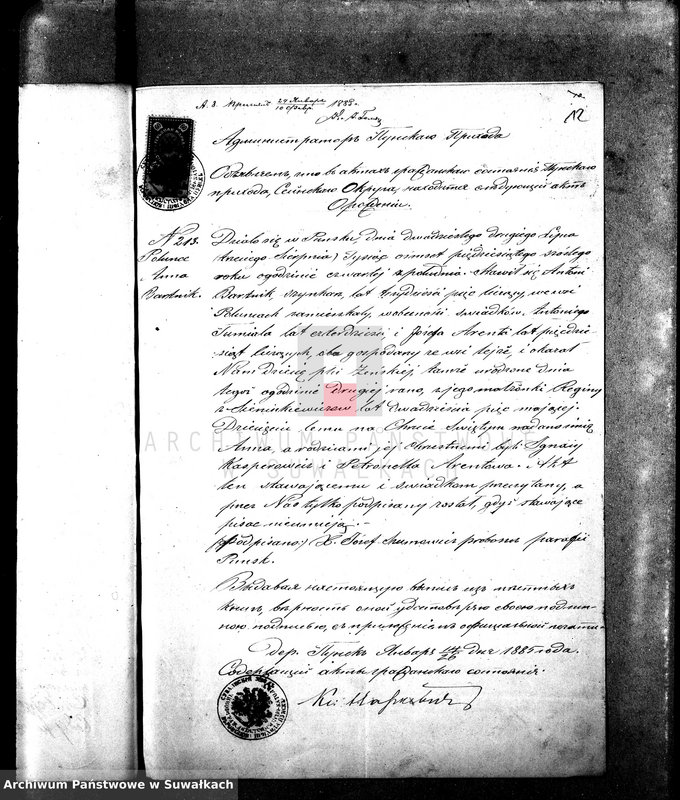 А. 3. Принят 29 Января/10 Февр. 1885 г.
12
Администраторъ Пунскаго Прихода
Объявляетъ, что въ актахъ гражданскаго состоянія Пунскаго
прихода, Сейнскаго Округа, находится слѣдующій актъ
О рожденіи.
N 213.
Polunce
Anna
Bartnik.
Działo się w Puńsku, dnia dwudziestego drugiego Lipca
trzeciego Sierpnia) Tysiąc ośmset pięćdziesiątego szóstego
roku o godzinie czwartej z południa. Stawił się Antoni
Bartnik, szynkarz, lat trzydzieści pięć liczący, we wsi
Poluńcach zamieszkały, w obecności świadków, Antoniego
Tumiala lat czterdzieści i Józefa Arenta lat pięćdzie-
siąt liczących, oba gospodarzy ze wsi tejże, i okazał
Nam dziecię płci żeńskiéj tamże urodzone dnia
tegoż o godzinie drugiej rano, z jego małżonki Reginy
z Sienkiewiczów lat dwadzieścia pięć mającej.
Dziecięciu temu na Chrzcie Świętym nadano imię
Anna, a rodzicami jej chrzestnemi byli Ignacy
Kasperowicz i Petronella Arentowa. Akt
ten stawającemu i świadkom przeczytany, a
przez Nas tylko podpisany został, gdyż stawające
pisać nieumieją.-
(podpisano) X. Józef proboszcz parafii
Puńsk.
Выдавая настоящую выпись изъ метныхъ
книгъ, вѣрность оной удостовѣряю своею подлин-
ною подписью, съ приложеніемъ официальной печати
дер. Пунскъ Января 14/26 дня 1885 года.
Содержащій акты гражданскаго состоянія.
ARCHIWUM PAŃSTWOWE
W SUWAŁKACH
Archiwum Państwowe w Suwałkach